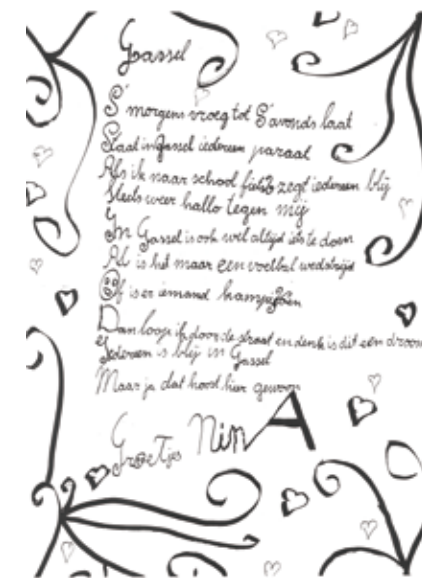 Gassel
S' morgens vroeg tot S'avonds laat
Staat in Gassel iedereen paraat
Als ik naar school fiets zegt iedereen blij
Steeds weer hallo tegen mij
In Gassel is ook wel altijd iets te doen
Al is het maar een voetbal wedstrijd
Of is er iemand kampioen
Dan loop ik door de straat en denk is dit een droom
Iedereen is blij in Gassel
Maar ja dat hoort hier gewoon
Groetjes NinA